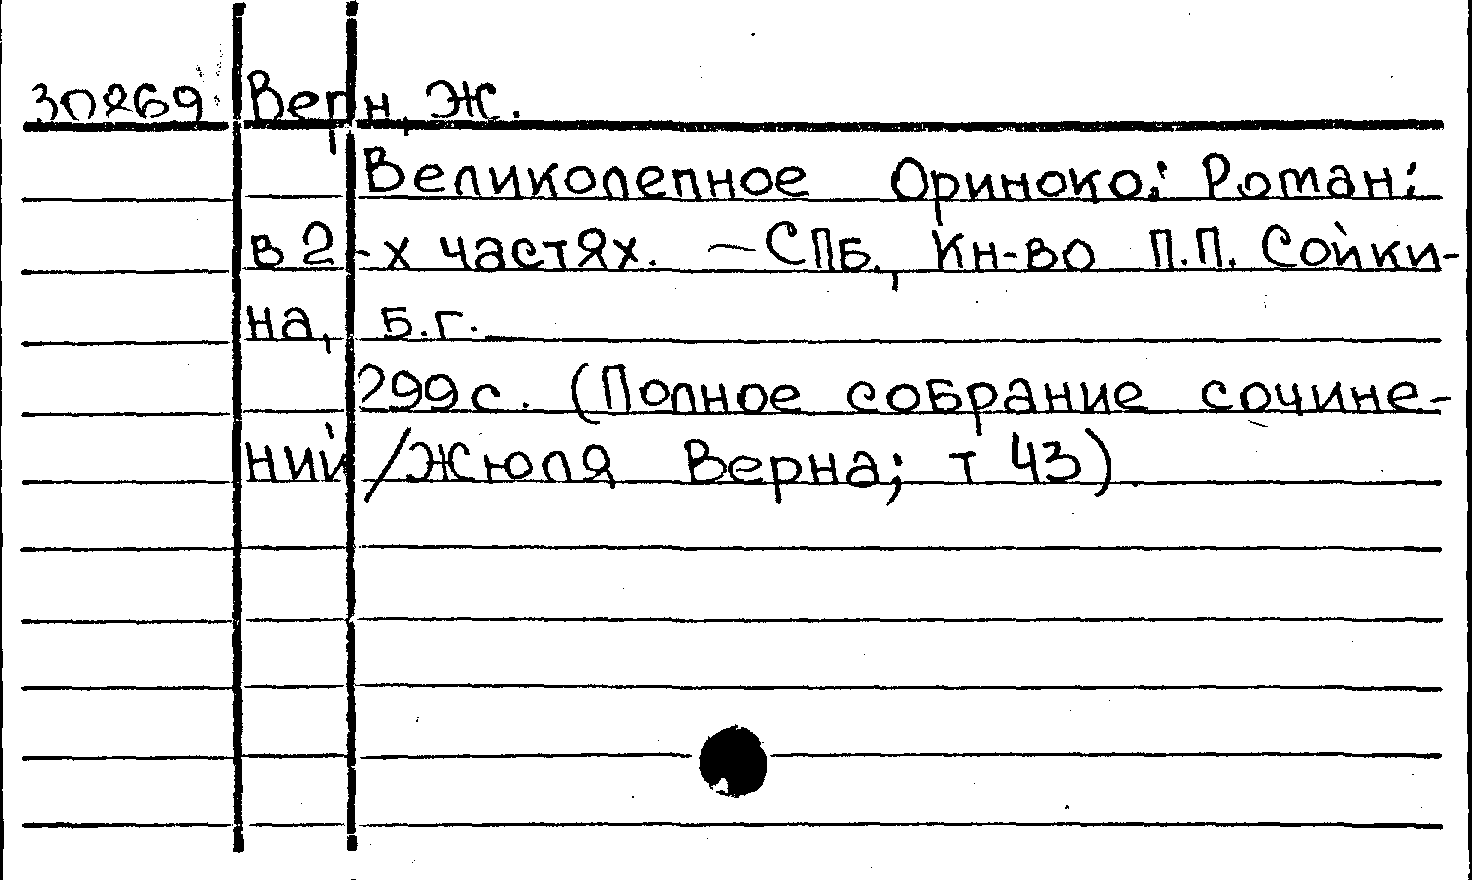 30269 Верн, Ж.
Великолепное Ориноко: Роман:
в 2-х частях. – СПБ., Кн-во П.П. Сойки-
на, Б.г.
299с. (Полное собрание сочине-
ний /Жюля Верна; т 43)